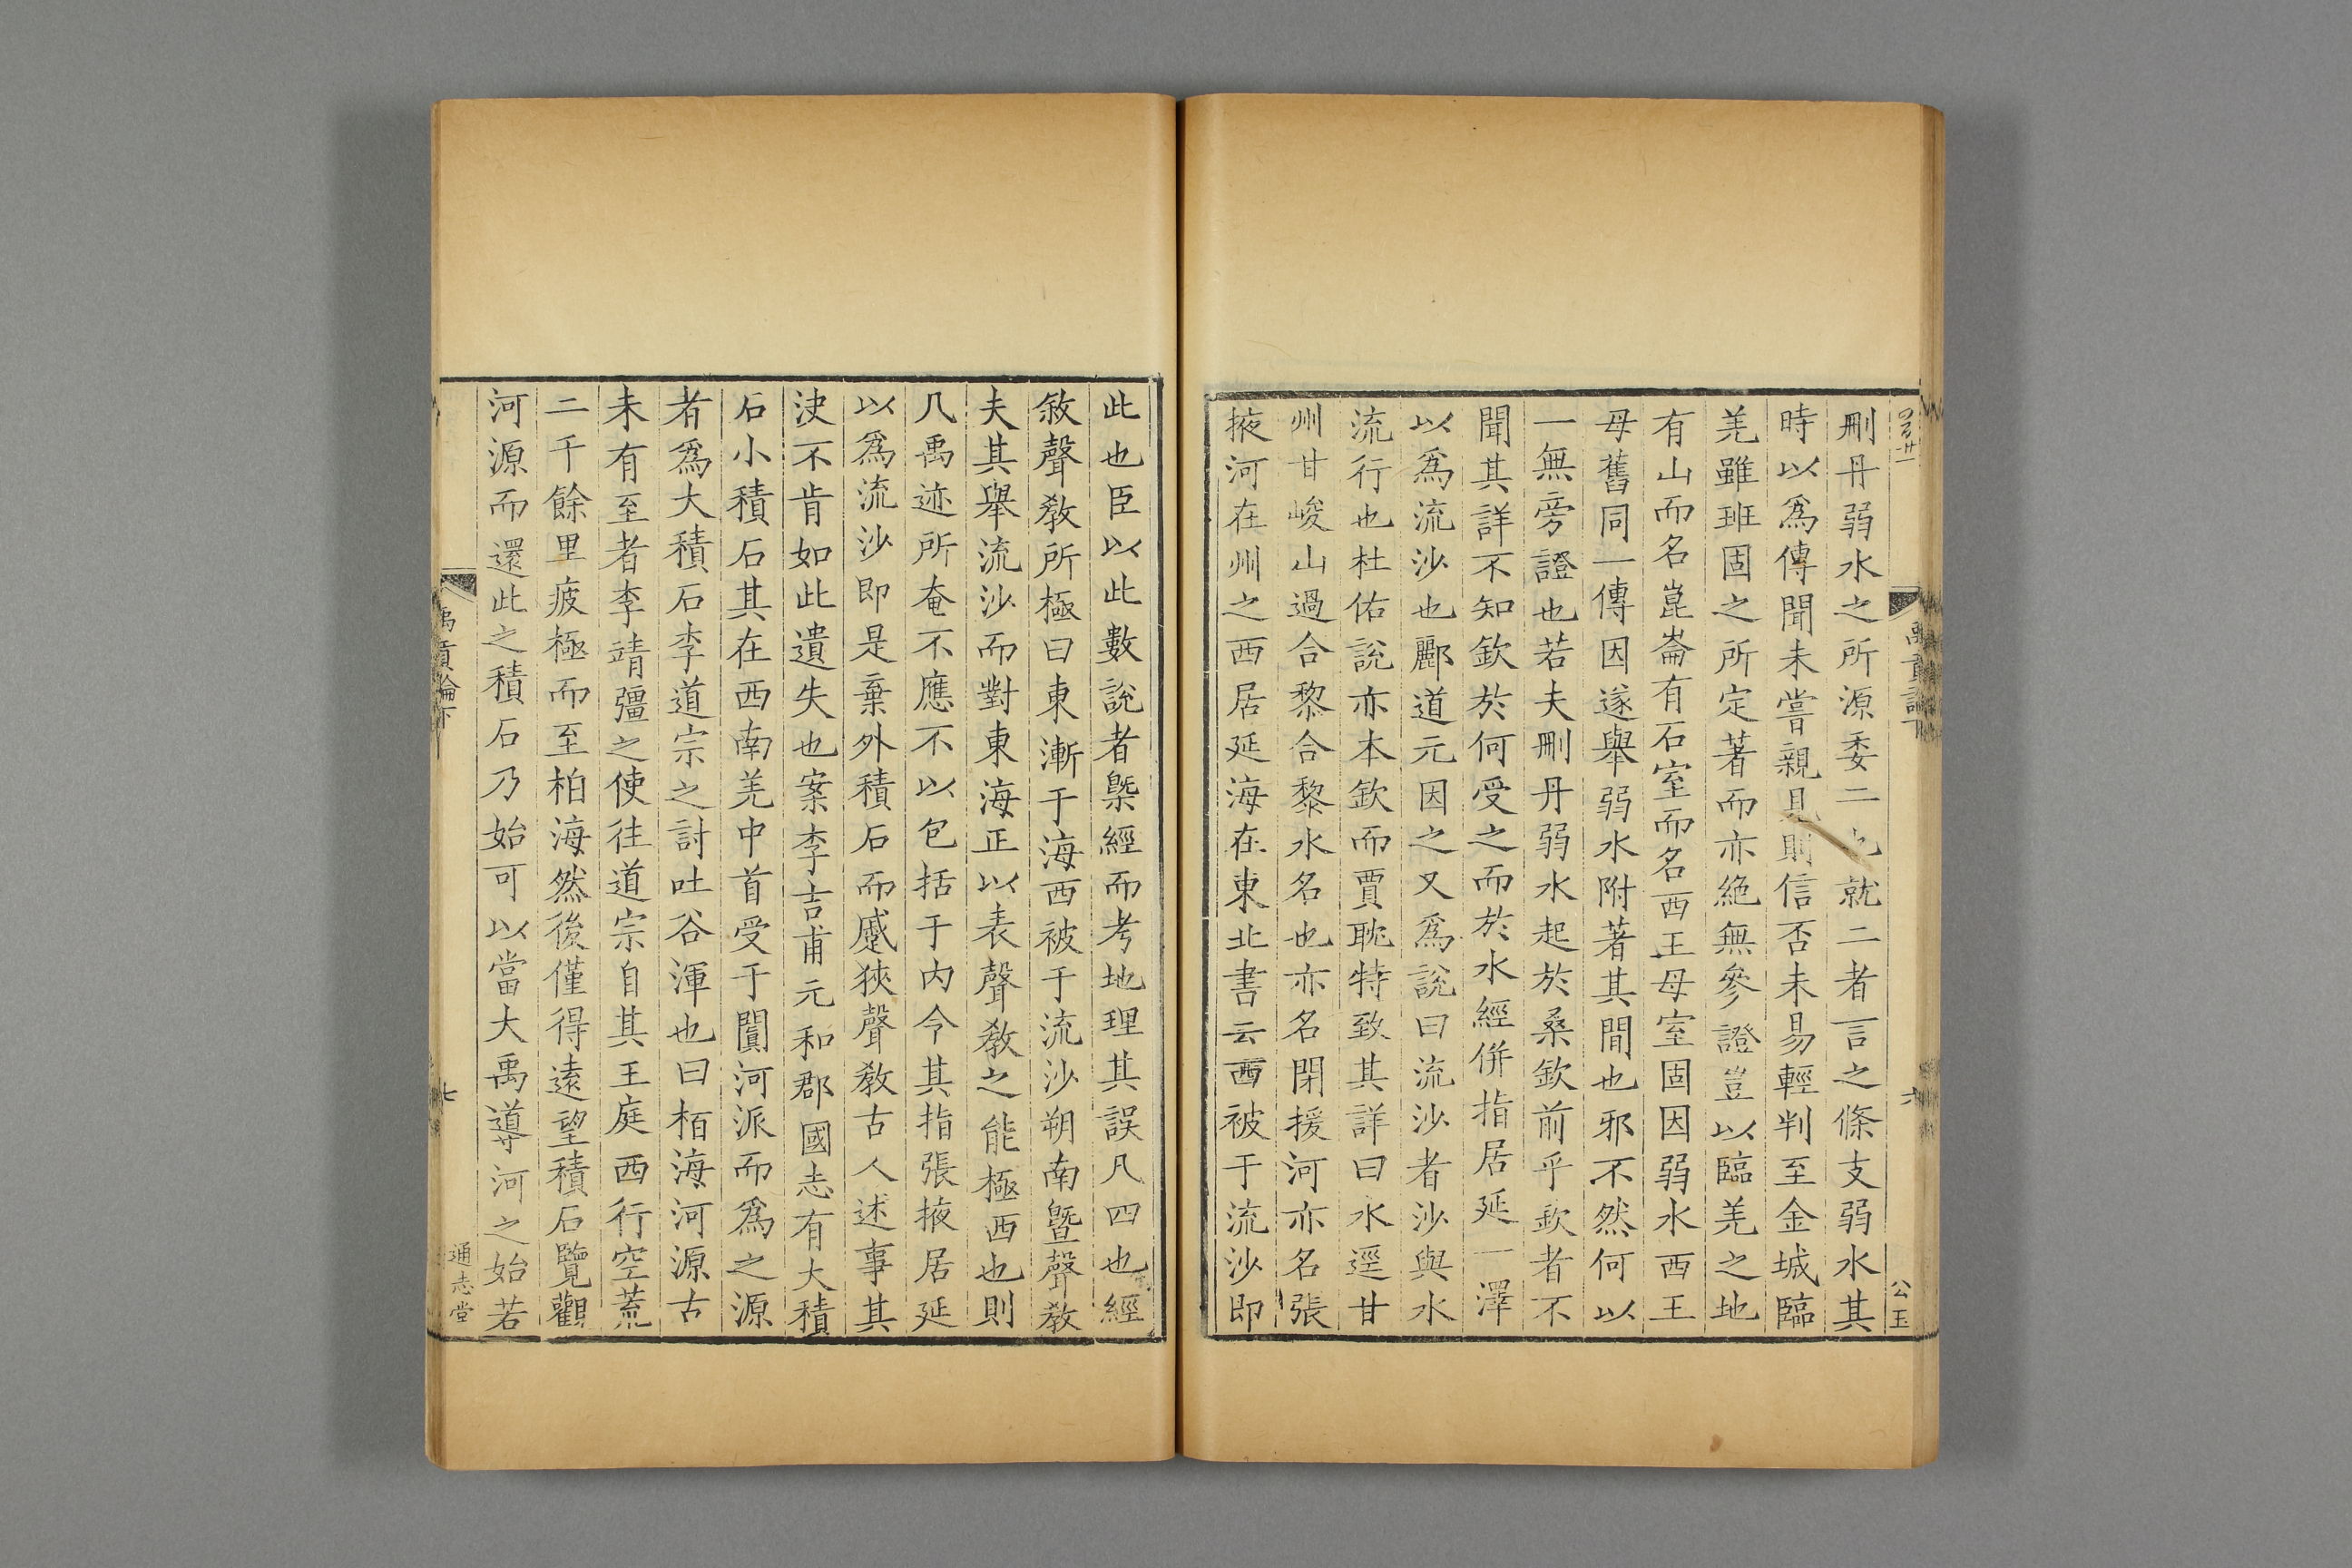 刪丹弱水之所源委二也就二者言之條支弱水其
時以爲傳聞未嘗親見則信否未易輕判至金城臨
羌雖班固之所定著而亦絶無參證豈以臨羌之地
有山而名崑崙有石室而名西王母室固因弱水西王
母舊同一傳因遂舉弱水附著其間也邪不然何以
一無旁證也若夫刪丹弱水起於桑欽前乎欽者不
聞其詳不知欽於何受之而於水經併指居延一澤
以爲流沙也酈道元因之又爲説曰流沙者沙與水
流行也杜佑説亦本欽而賈耽特致其詳曰水逕甘
州甘峻山過合黎合黎水名也亦名閉援河亦名張
掖河在州之西居延海在東北書云西被于流沙即
禹貢論下
六
公玉
此也臣以此數説者槩經而考地理其誤凡四也經
敘聲教所極曰東漸于海西被于流沙朔南曁聲教
夫其舉流沙而對東海正以表聲教之能極西也則
凡禹迹所奄不應不以包括于内今其指張掖居延
以爲流沙即是棄外積石而蹙狹聲教古人述事其
決不肯如此遺失也案李吉甫元和郡國志有大積
石小積石其在西南羌中首受于闐河派而爲之源
者爲大積石李道宗之討吐谷渾也曰栢海河源古
未有至者李靖彊之使往道宗自其王庭西行空荒
二千餘里疲極而至柏海然後僅得遠望積石覽觀
河源而還此之積石乃始可以當大禹導河之始若
禹貢論下
七
通志堂